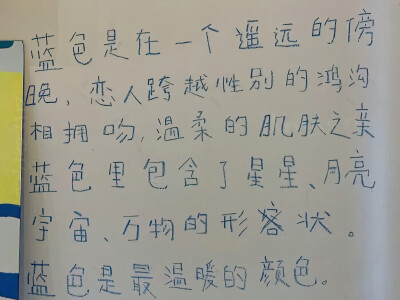 蓝色是在一个遥远的傍
晚,恋人跨越性别的鸿沟
相拥吻,温柔的肌肤之亲
蓝色里包含了星星、月亮
宇宙、万物的形容状。
蓝色是最温暖的颜色。